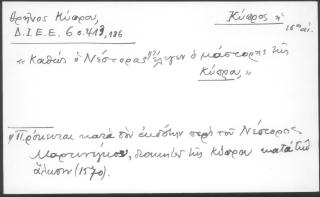 Θρῆνος Κύπρου,
Δ.Ι.Ε.Ε. 6 σ. 413, 186
Κύπρος
16ου αἰ.
« Καθὼς ὁ Νέστορας ἔλεγεν ὁ μάστορης τῆς
Κύπρου, »
Πρόκειται κατὰ τὸν ἐκδότην περὶ τοῦ Νέστορος
Μαρτινέγκου, διοικητοῦ τῆς Κύπρου κατὰ τὴν
ἅλωσιν (1570).